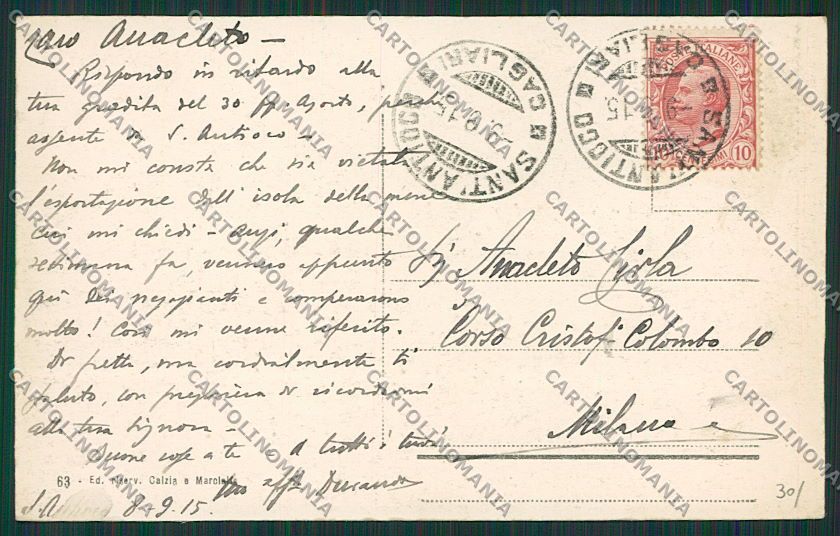 Caro Anacleto -
Rispondo in ritardo alla
tua gradita del 30 pp. Agosto, perché
assente da S. Antioco -
Non mi consta che sia vietata
l'esportazione dall'isola della merce
cui mi chiedi - anzi, qualche
settimana fa, vennero appunto
qui dei negozianti e comperarono
molto! Così mi venne riferito.
Di fretta, ma cordialmente ti
saluto, con preghiera di ricordarmi
alla tua Signora -
Buone cose a te e a tutti i tuoi
tuo aff.
8-9-15
63 - Ed. Riserv. Calzia e Marciella
SANT'ANTIOCO
CAGLIARI
9.9.15
SANT'ANTIOCO
CAGLIARI
POSTE ITALIANE
10
Sig. Anacleto Girola
Corso Cristof. Colombo 10
Milano
30/
CARTOLINOMANIA